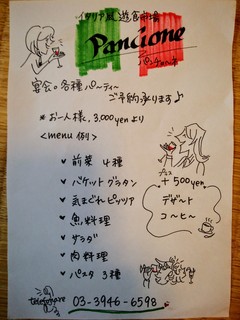 イタリア風遊食市場
Pancione
パンチョーネ
宴会。各種パーティー
ご予約承ります♪
* お一人様、3,000yenより
<menu 例>
✓ 前菜 4種
✓ バケットグラタン
✓ 気まぐれピッツァ
✓ 魚料理
✓ サラダ
✓ 肉料理
✓ パスタ 3種
+500yen
デザート
コーヒー
03-3946-6598